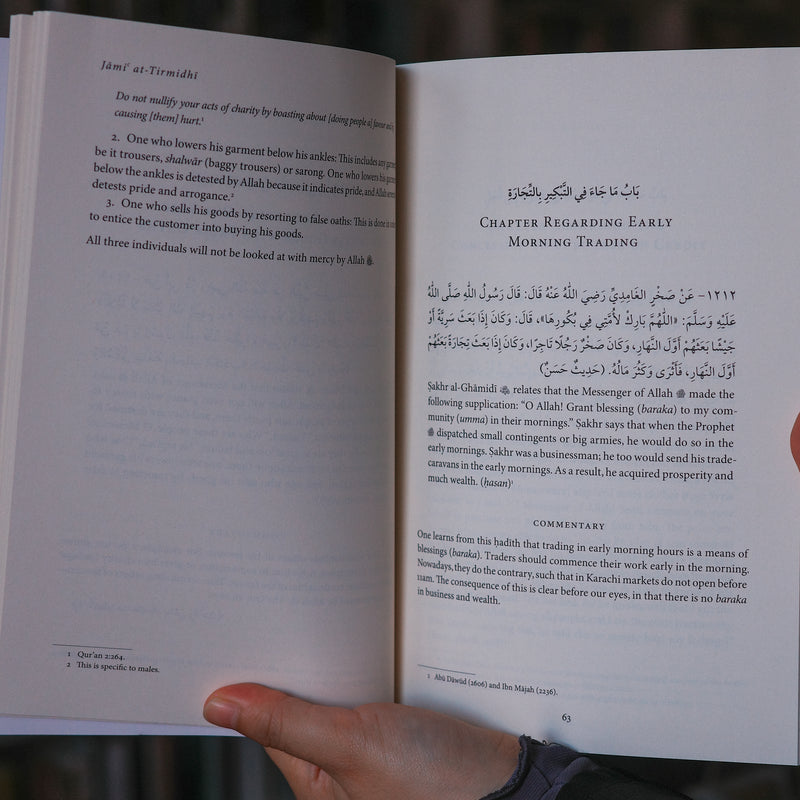 Jāmiʿ at-Tirmidhī
Do not nullify your acts of charity by boasting about [doing people a] favour
causing [them] hurt.¹
2. One who lowers his garment below his ankles: This includes any
be it trousers, shalwār (baggy trousers) or sarong. One who lowers his
below the ankles is detested by Allah because it indicates pride, and Allah
detests pride and arrogance.²
3. One who sells his goods by resorting to false oaths: This is done in
to entice the customer into buying his goods.
All three individuals will not be looked at with mercy by Allah ﷻ.
1 Qur'an 2:264.
2 This is specific to males.
بَابُ مَا جَاءَ فِي التَّبْكِيرِ بِالتِّجَارَةِ
Chapter Regarding Early
Morning Trading
١٢١٢– عَنْ صَخْرٍ الغَامِدِيِّ رَضِيَ اللهُ عَنْهُ قَالَ: قَالَ رَسُولُ اللهِ صَلَّى اللهُ
عَلَيْهِ وَسَلَّمَ: «اللَّهُمَّ بَارِكْ لِأُمَّتِي فِي بُكُورِهَا»، قَالَ: وَكَانَ إِذَا بَعَثَ سَرِيَّةً أَوْ
جَيْشًا بَعَثَهُمْ أَوَّلَ النَّهَارِ، وَكَانَ صَخْرٌ رَجُلًا تَاجِرًا، وَكَانَ إِذَا بَعَثَ تِجَارَةً بَعَثَهُمْ
أَوَّلَ النَّهَارِ، فَأَثْرَى وَكَثُرَ مَالُهُ. (حَدِيثٌ حَسَنٌ)
Ṣakhr al-Ghāmidī relates that the Messenger of Allah ﷺ made the
following supplication: “O Allah! Grant blessing (baraka) to my com-
munity (umma) in their mornings.” Ṣakhr says that when the Prophet
ﷺ dispatched small contingents or big armies, he would do so in the
early mornings. Ṣakhr was a businessman; he too would send his trade-
caravans in the early mornings. As a result, he acquired prosperity and
much wealth. (ḥasan)¹
COMMENTARY
One learns from this ḥadīth that trading in early morning hours is a means of
blessings (baraka). Traders should commence their work early in the morning.
Nowadays, they do the contrary, such that in Karachi markets do not open before
11am. The consequence of this is clear before our eyes, in that there is no baraka
in business and wealth.
1 Abū Dāwūd (2606) and Ibn Mājah (2236).
63